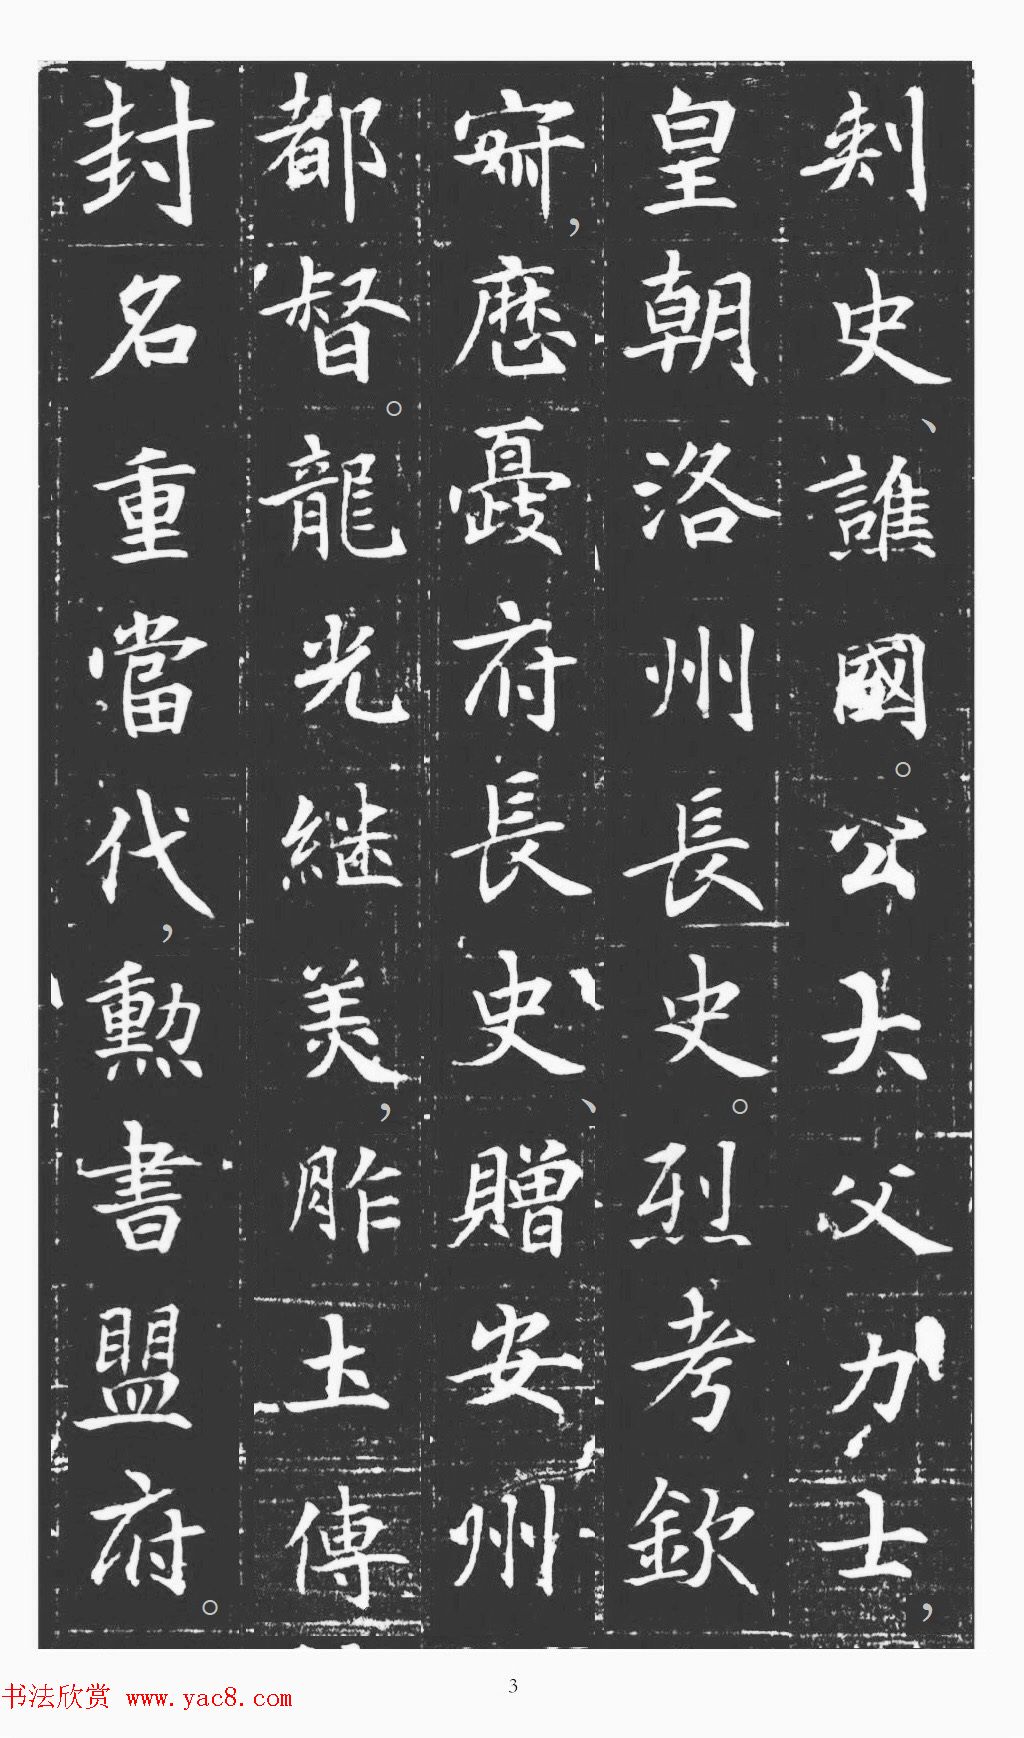 刾史、譙國。公大父力士，
皇朝洛州長史。烈考欽
㝎，歷夔府長史、贈安州
都督。龍光継美，胙土傳
封名重當代，勳書盟府。
3
书法欣赏 www.yac8.com